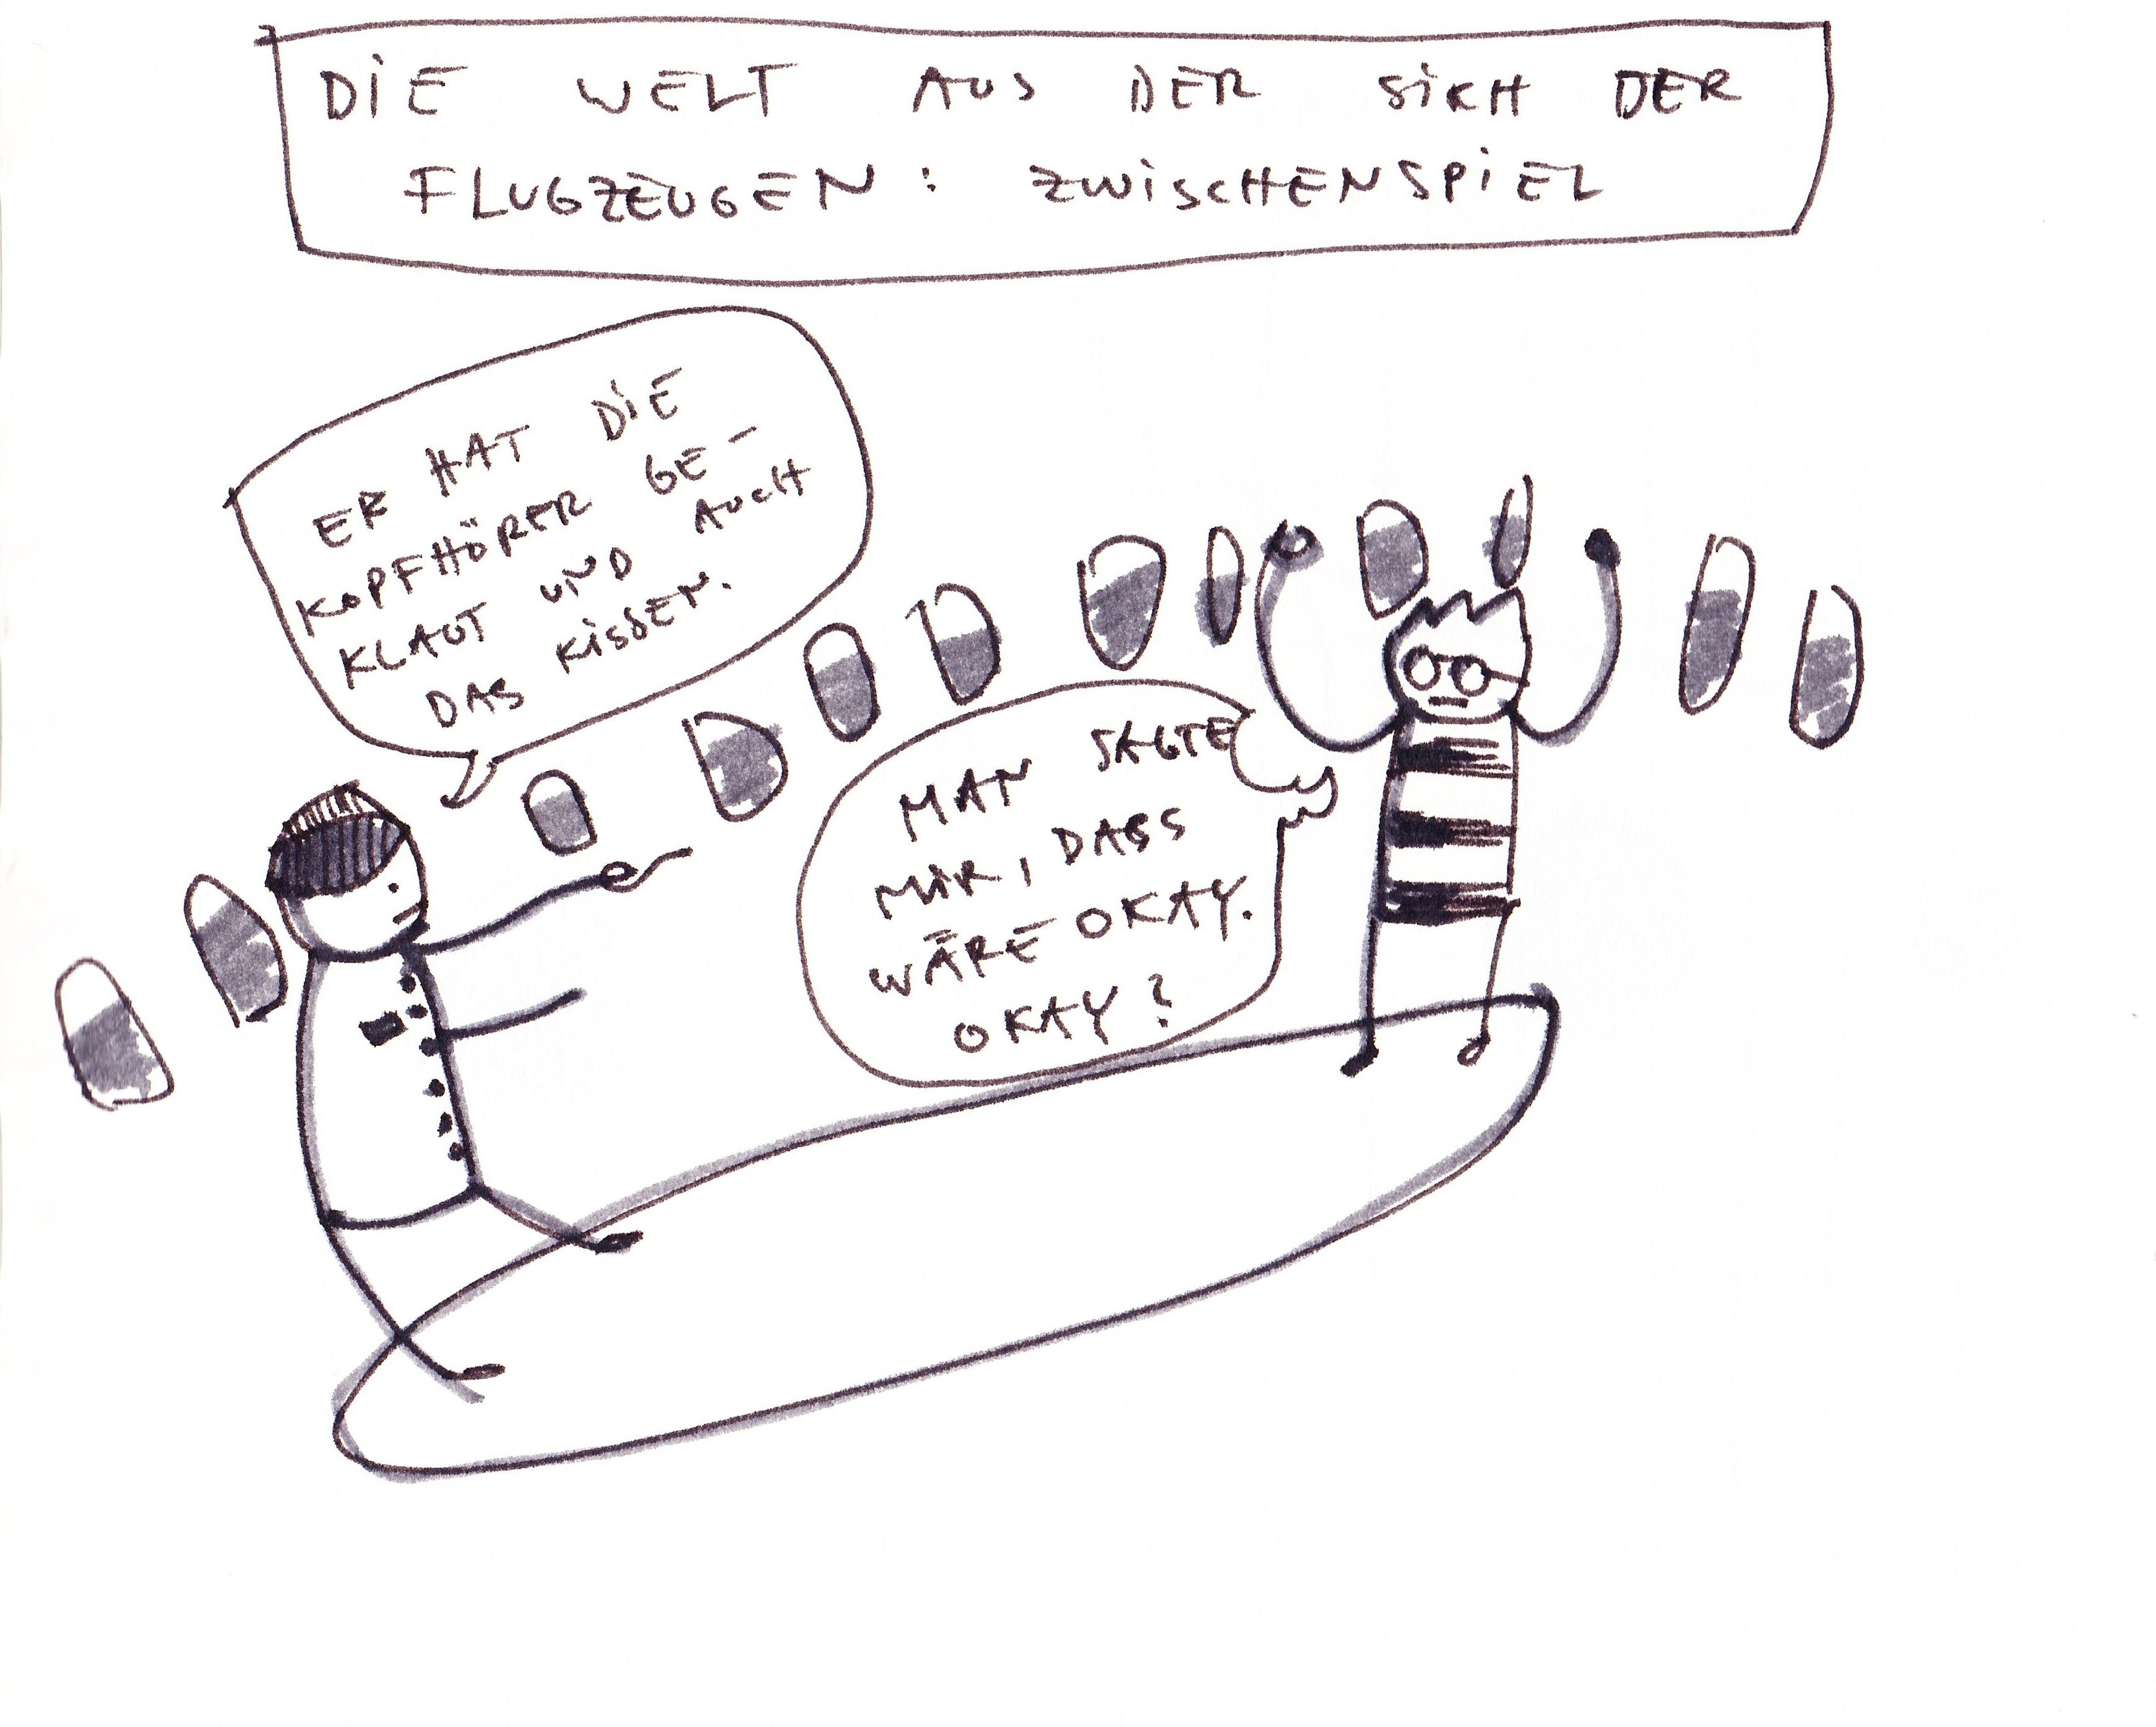 DIE WELT AUS DER SICH DER
FLUGZEUGEN: ZWISCHENSPIEL
ER HAT DIE
KOPFHÖRER GE-
KLAUT UND AUCH
DAS KISSEN.
MAN SAGTE
MIR, DASS
WÄRE OKAY.
OKAY?